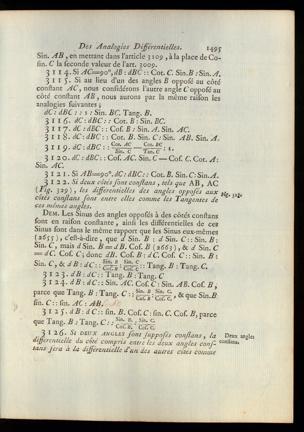 Des Analogies Différentielles. 1495
Sin. AB, en mettant dans l'article 3109, à la place de Co-
sin. C la seconde valeur de l'art. 3009.
3114. Si AC=90°, dB : dBC :: Cot. C. Sin. B : Sin. A.
3115. Si au lieu d'un des angles B opposé au côté
constant AC, nous considérons l'autre angle C opposé au
côté constant AB, nous aurons par la même raison les
analogies suivantes ;
dC : dBC :: 1 : Sin. BC. Tang. B.
3116. dC : dBC :: Cot. B : Sin. BC.
3117. dC : dBC :: Cos. B : Sin. A. Sin. AC.
3118. dC : dBC :: Cot. B. Sin. C : Sin. AB. Sin. A.
3119. dC : dBC :: Cot. AC / Sin. C — Cot. BC / Tan. C : 1.
3120. dC : dBC :: Cos. AC. Sin. C — Cos. C. Cot. A :
Sin. AC.
3121. Si AB=90°. dC : dBC :: Cot. B. Sin. C : Sin. A.
3122. Si deux côtés sont constans, tels que AB, AC
(Fig. 329), les différentielles des angles opposés aux
côtés constans sont entre elles comme les Tangentes de
ces mêmes angles.
DEM. Les Sinus des angles opposés à des côtés constans
sont en raison constante, ainsi les différentielles de ces
Sinus sont dans le même rapport que les Sinus eux-mêmes
(2655), c'est-à-dire, que d Sin. B : d Sin. C :: Sin. B :
Sin. C, mais d Sin. B = d B. Cos. B (2669), & d Sin. C
= dC. Cos. C; donc dB. Cos. B : dC. Cos. C :: Sin. B :
Sin. C, & dB : dC :: Sin. B / Cos. B : Sin. C / Cos. C :: Tang. B : Tang. C.
3123. dB : dC :: Tang. B : Tang. C
3124. dB : dC :: Sin. AC. Cos. C : Sin. AB. Cos. B,
parce que Tang. B : Tang. C :: Sin. B / Cos. B : Sin. C / Cos. C, & que Sin. B
sin. C :: sin. AC : AB.
3125. dB : dC :: sin. B. Cos. C : sin. C. Cos. B, parce
que Tang. B : Tang. C :: Sin. B / Cos. B : Sin. C / Cos. C.
3126. SI DEUX ANGLES sont supposés constans, la
différentielle du côté compris entre les deux angles cons-
tans sera à la différentielle d'un des autres côtés comme
Fig. 329.
Deux angles
constans.